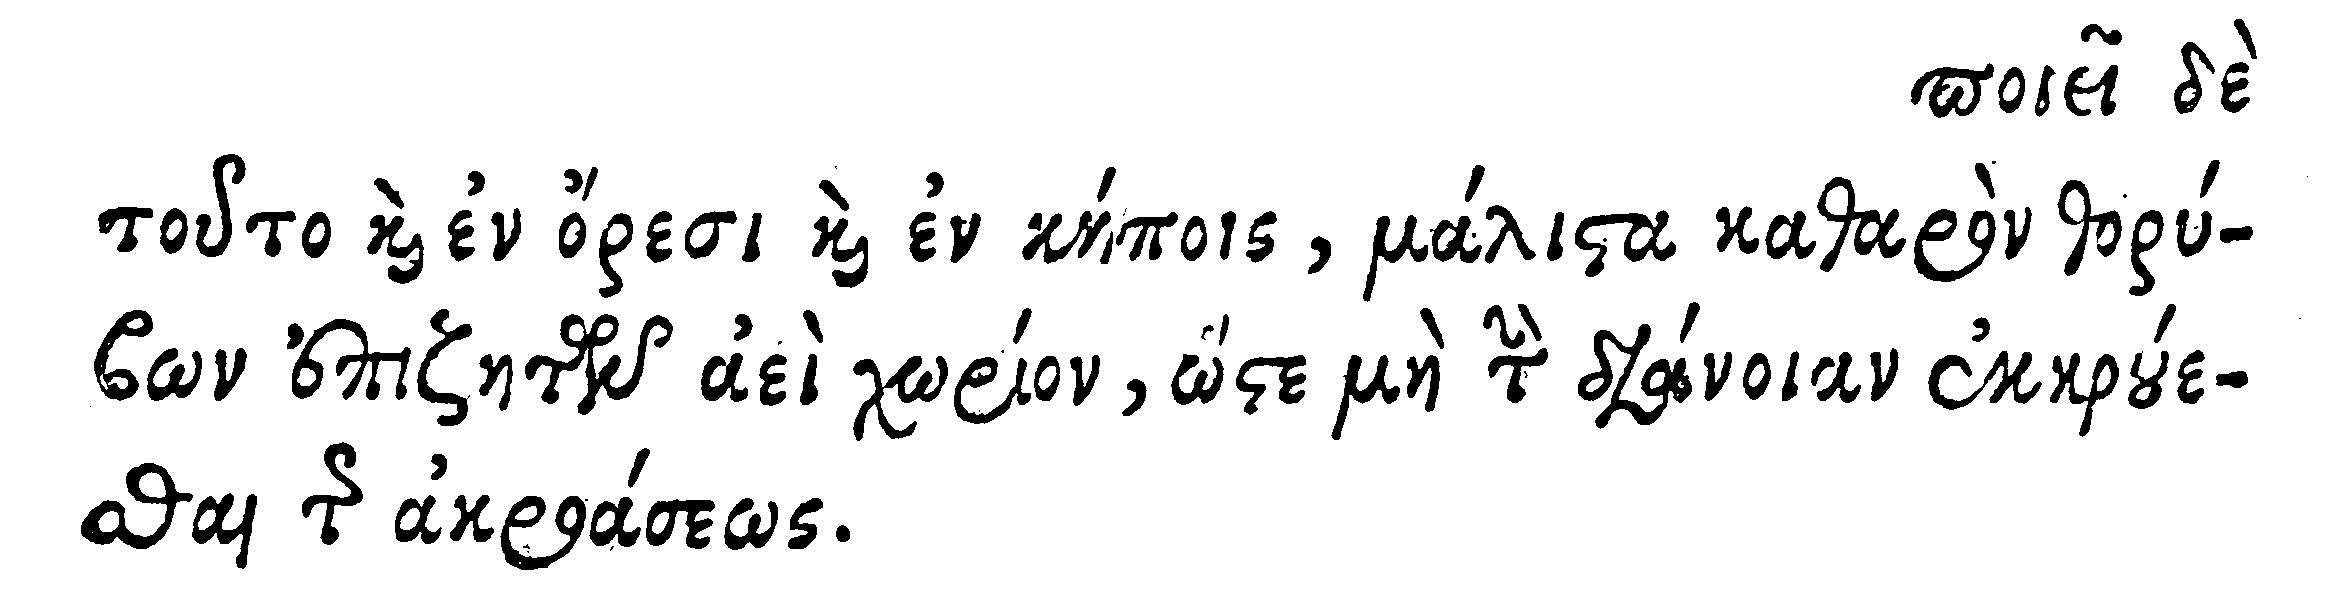 ποιεῖ δὲ
τοῦτο καὶ ἐν ὄρεσι καὶ ἐν κήποις, μάλιστα καθαρὸν θορύ-
βων ἐπιζητοῦν ἀεὶ χωρίον, ὥστε μὴ τὴν διάνοιαν ἐκκρούε-
σθαι τῆς ἀκροάσεως.